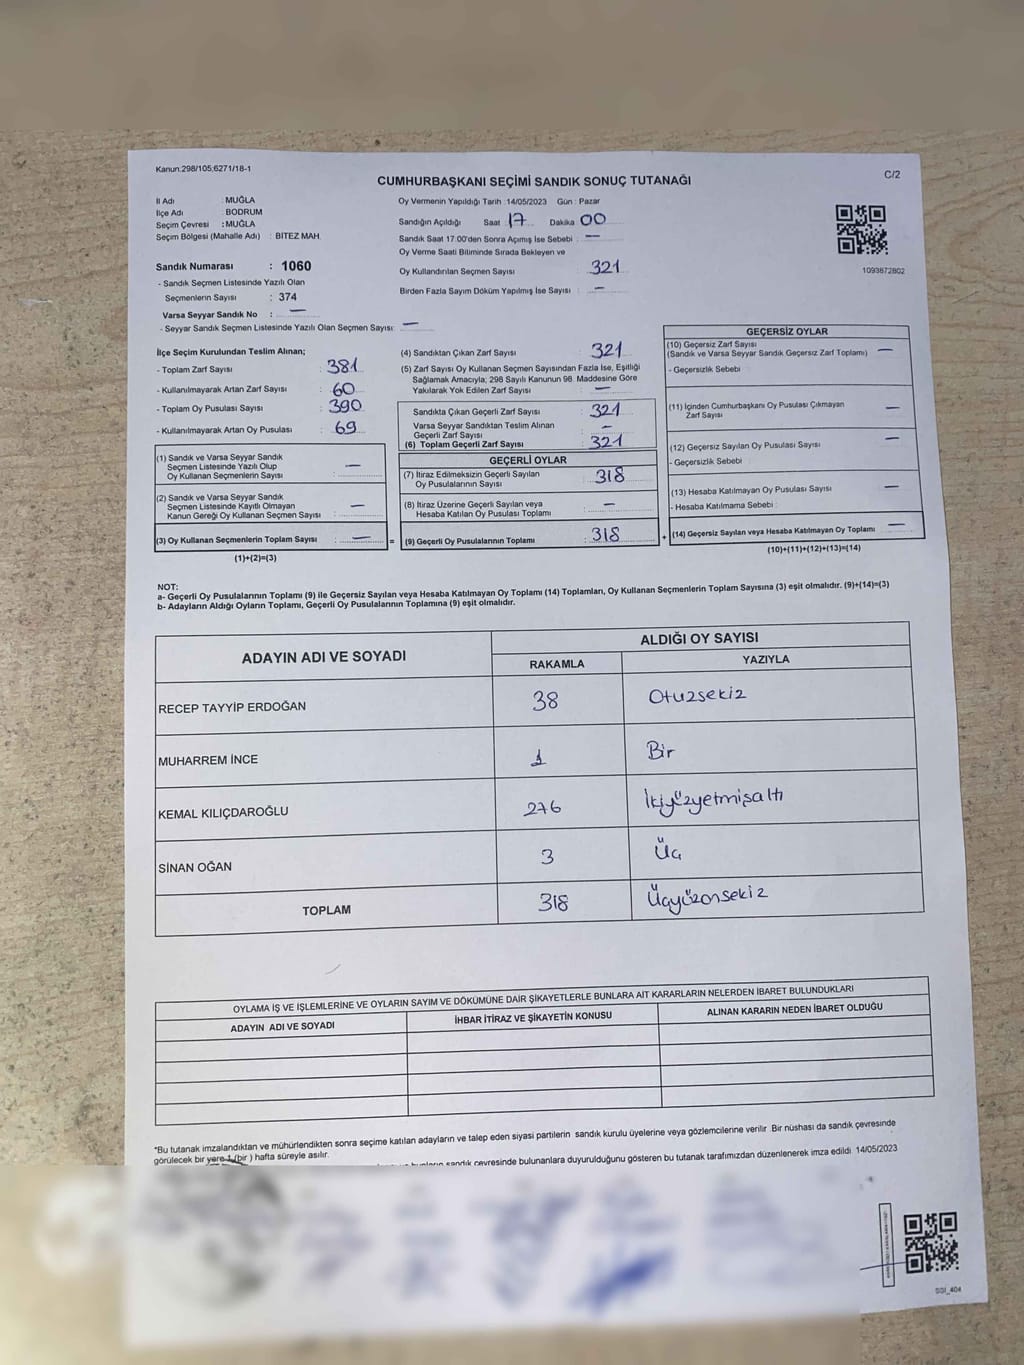 Kanun:298/105;6271/18-1
C/2
CUMHURBAŞKANI SEÇİMİ SANDIK SONUÇ TUTANAĞI
İl Adı : MUĞLA
İlçe Adı : BODRUM
Seçim Çevresi : MUĞLA
Seçim Bölgesi (Mahalle Adı) : BİTEZ MAH.
Sandık Numarası : 1060
- Sandık Seçmen Listesinde Yazılı Olan
Seçmenlerin Sayısı : 374
Varsa Seyyar Sandık No : —
- Seyyar Sandık Seçmen Listesinde Yazılı Olan Seçmen Sayısı: —
Oy Vermenin Yapıldığı Tarih :14/05/2023 Gün : Pazar
Sandığın Açıldığı Saat 17 Dakika 00
Sandık Saat 17:00'den Sonra Açımış İse Sebebi : —
Oy Verme Saati Bitiminde Sırada Bekleyen ve
Oy Kullandırılan Seçmen Sayısı : 321
Birden Fazla Sayım Döküm Yapılmış İse Sayısı : —
1093872802
İlçe Seçim Kurulundan Teslim Alınan;
- Toplam Zarf Sayısı : 381
- Kullanılmayarak Artan Zarf Sayısı : 60
- Toplam Oy Pusulası Sayısı : 390
- Kullanılmayarak Artan Oy Pusulası : 69
(1) Sandık ve Varsa Seyyar Sandık
Seçmen Listesinde Yazılı Olup
Oy Kullanan Seçmenlerin Sayısı : —
(2) Sandık ve Varsa Seyyar Sandık
Seçmen Listesinde Kayıtlı Olmayan
Kanun Gereği Oy Kullanan Seçmen Sayısı : —
(3) Oy Kullanan Seçmenlerin Toplam Sayısı : —
(1)+(2)=(3)
(4) Sandıktan Çıkan Zarf Sayısı : 321
(5) Zarf Sayısı Oy Kullanan Seçmen Sayısından Fazla İse, Eşitliği
Sağlamak Amacıyla; 298 Sayılı Kanunun 98. Maddesine Göre
Yakılarak Yok Edilen Zarf Sayısı : —
Sandıkta Çıkan Geçerli Zarf Sayısı : 321
Varsa Seyyar Sandıktan Teslim Alınan
Geçerli Zarf Sayısı : —
(6) Toplam Geçerli Zarf Sayısı : 321
GEÇERLİ OYLAR
(7) İtiraz Edilmeksizin Geçerli Sayılan
Oy Pusulalarının Sayısı : 318
(8) İtiraz Üzerine Geçerli Sayılan veya
Hesaba Katılan Oy Pusulası Toplamı : —
= (9) Geçerli Oy Pusulalarının Toplamı : 318
GEÇERSİZ OYLAR
(10) Geçersiz Zarf Sayısı
(Sandık ve Varsa Seyyar Sandık Geçersiz Zarf Toplamı) —
- Geçersizlik Sebebi :
(11) İçinden Cumhurbaşkanı Oy Pusulası Çıkmayan
Zarf Sayısı —
(12) Geçersiz Sayılan Oy Pusulası Sayısı —
- Geçersizlik Sebebi :
(13) Hesaba Katılmayan Oy Pusulası Sayısı —
- Hesaba Katılmama Sebebi :
+ (14) Geçersiz Sayılan veya Hesaba Katılmayan Oy Toplamı —
(10)+(11)+(12)+(13)=(14)
NOT:
a- Geçerli Oy Pusulalarının Toplamı (9) ile Geçersiz Sayılan veya Hesaba Katılmayan Oy Toplamı (14) Toplamları, Oy Kullanan Seçmenlerin Toplam Sayısına (3) eşit olmalıdır. (9)+(14)=(3)
b- Adayların Aldığı Oyların Toplamı, Geçerli Oy Pusulalarının Toplamına (9) eşit olmalıdır.
ADAYIN ADI VE SOYADI
ALDIĞI OY SAYISI
RAKAMLA YAZIYLA
RECEP TAYYİP ERDOĞAN 38 Otuzsekiz
MUHARREM İNCE 1 Bir
KEMAL KILIÇDAROĞLU 276 İkiyüzyetmişaltı
SİNAN OĞAN 3 Üç
TOPLAM 318 Üçyüzonsekiz
OYLAMA İŞ VE İŞLEMLERİNE VE OYLARIN SAYIM VE DÖKÜMÜNE DAİR ŞİKAYETLERLE BUNLARA AİT KARARLARIN NELERDEN İBARET BULUNDUKLARI
ADAYIN ADI VE SOYADI İHBAR İTİRAZ VE ŞİKAYETİN KONUSU ALINAN KARARIN NEDEN İBARET OLDUĞU
*Bu tutanak imzalandıktan ve mühürlendikten sonra seçime katılan adayların ve talep eden siyasi partilerin sandık kurulu üyelerine veya gözlemcilerine verilir. Bir nüshası da sandık çevresinde
görülecek bir yere 1 (bir ) hafta süreyle asılır.
sandık çevresinde bulunanlara duyurulduğunu gösteren bu tutanak tarafımızdan düzenlenerek imza edildi. 14/05/2023